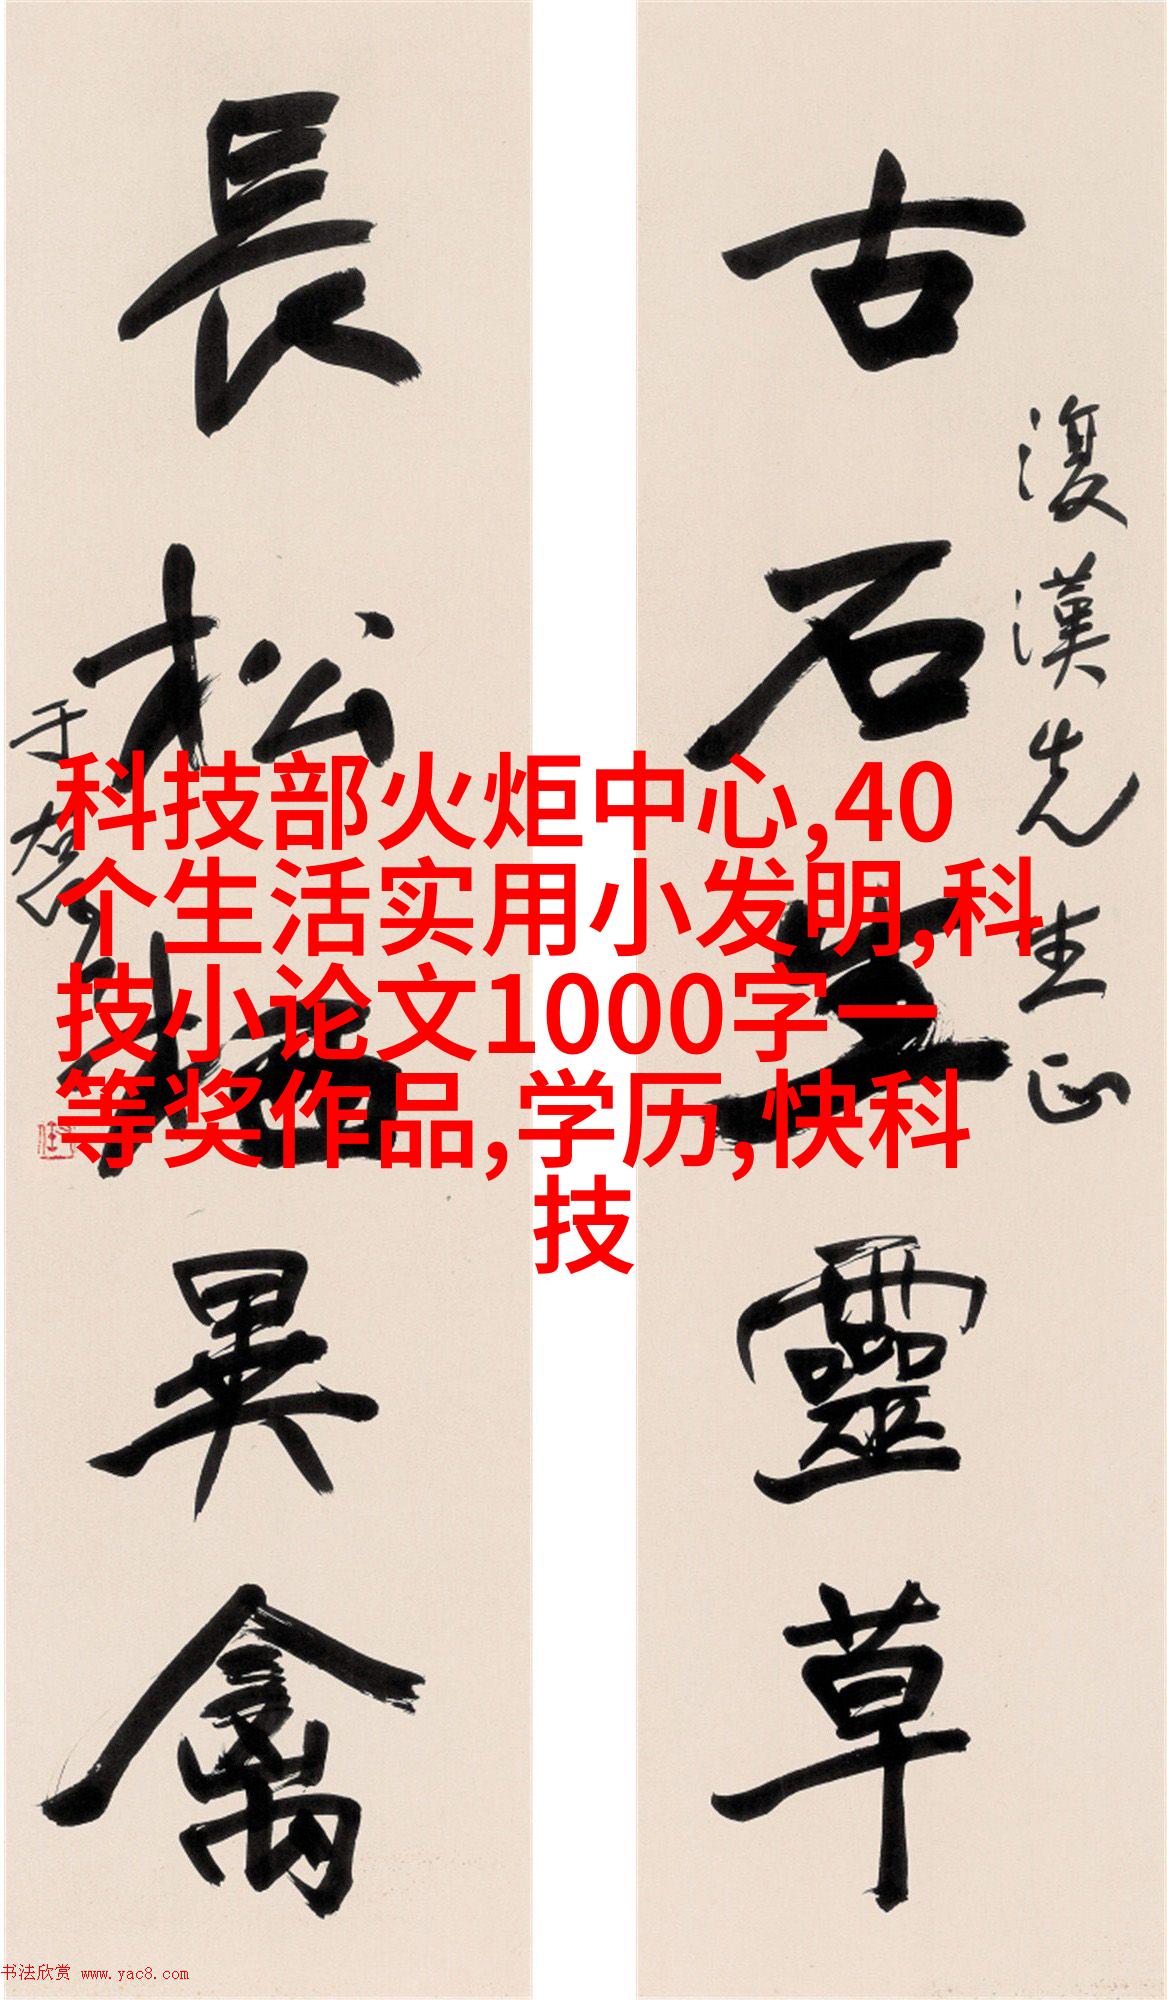 古石生靈草
復漢先生正
長松栖異禽
于右任
科技部火炬中心,40
个生活实用小发明,科
技小论文1000字一
等奖作品,学历,快科
技
书法欣赏 www.yac8.com